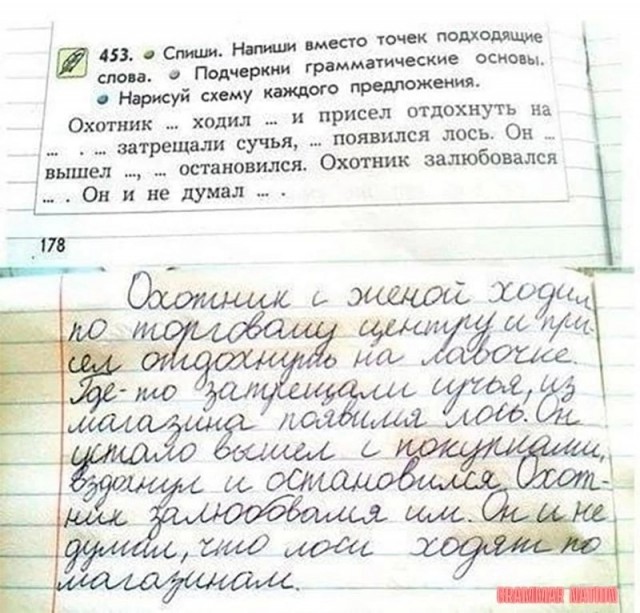 453. Спиши. Напиши вместо точек подходящие
слова. Подчеркни грамматические основы.
Нарисуй схему каждого предложения.
Охотник ... ходил ... и присел отдохнуть на
... . ... затрещали сучья, ... появился лось. Он ...
вышел ..., ... остановился. Охотник залюбовался
... . Он и не думал ... .
178
Охотник с женой ходил
по торговому центру и при-
сел отдохнуть на лавочке.
Где-то затрещали сучья, из
магазина появился лось. Он
устало вышел с покупками,
вздохнул и остановился. Охот-
ник залюбовался им. Он и не
думал, что лоси ходят по
магазинам.
GRAMMAR NATION